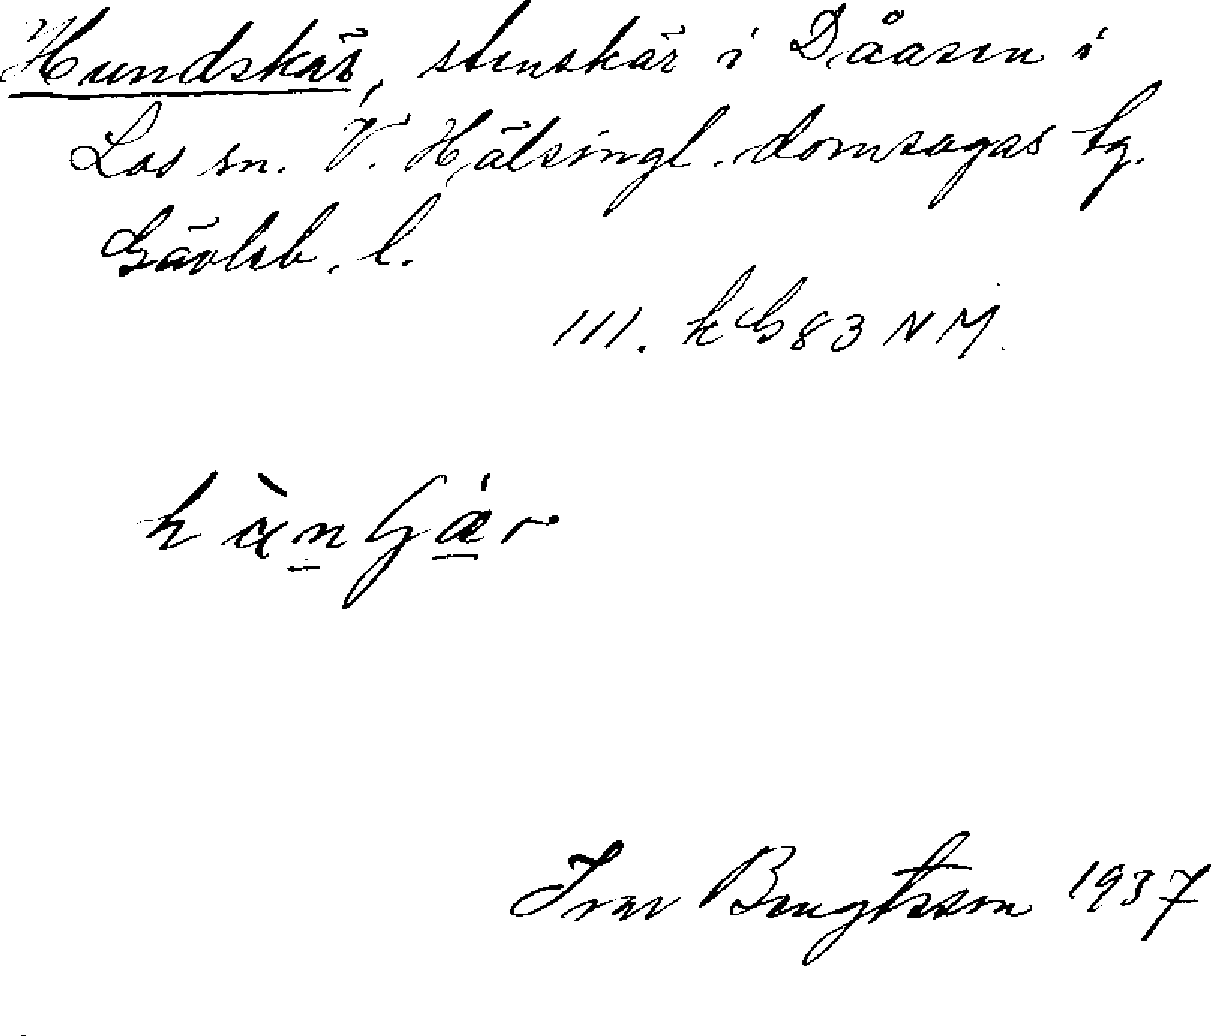 Hundskär, stenskär i Dåasen i
Los sn. V. Hälsingl. domsagas tg.
Gävleb. l.
III. kG83NM.
Ivar Bengtsson 1937